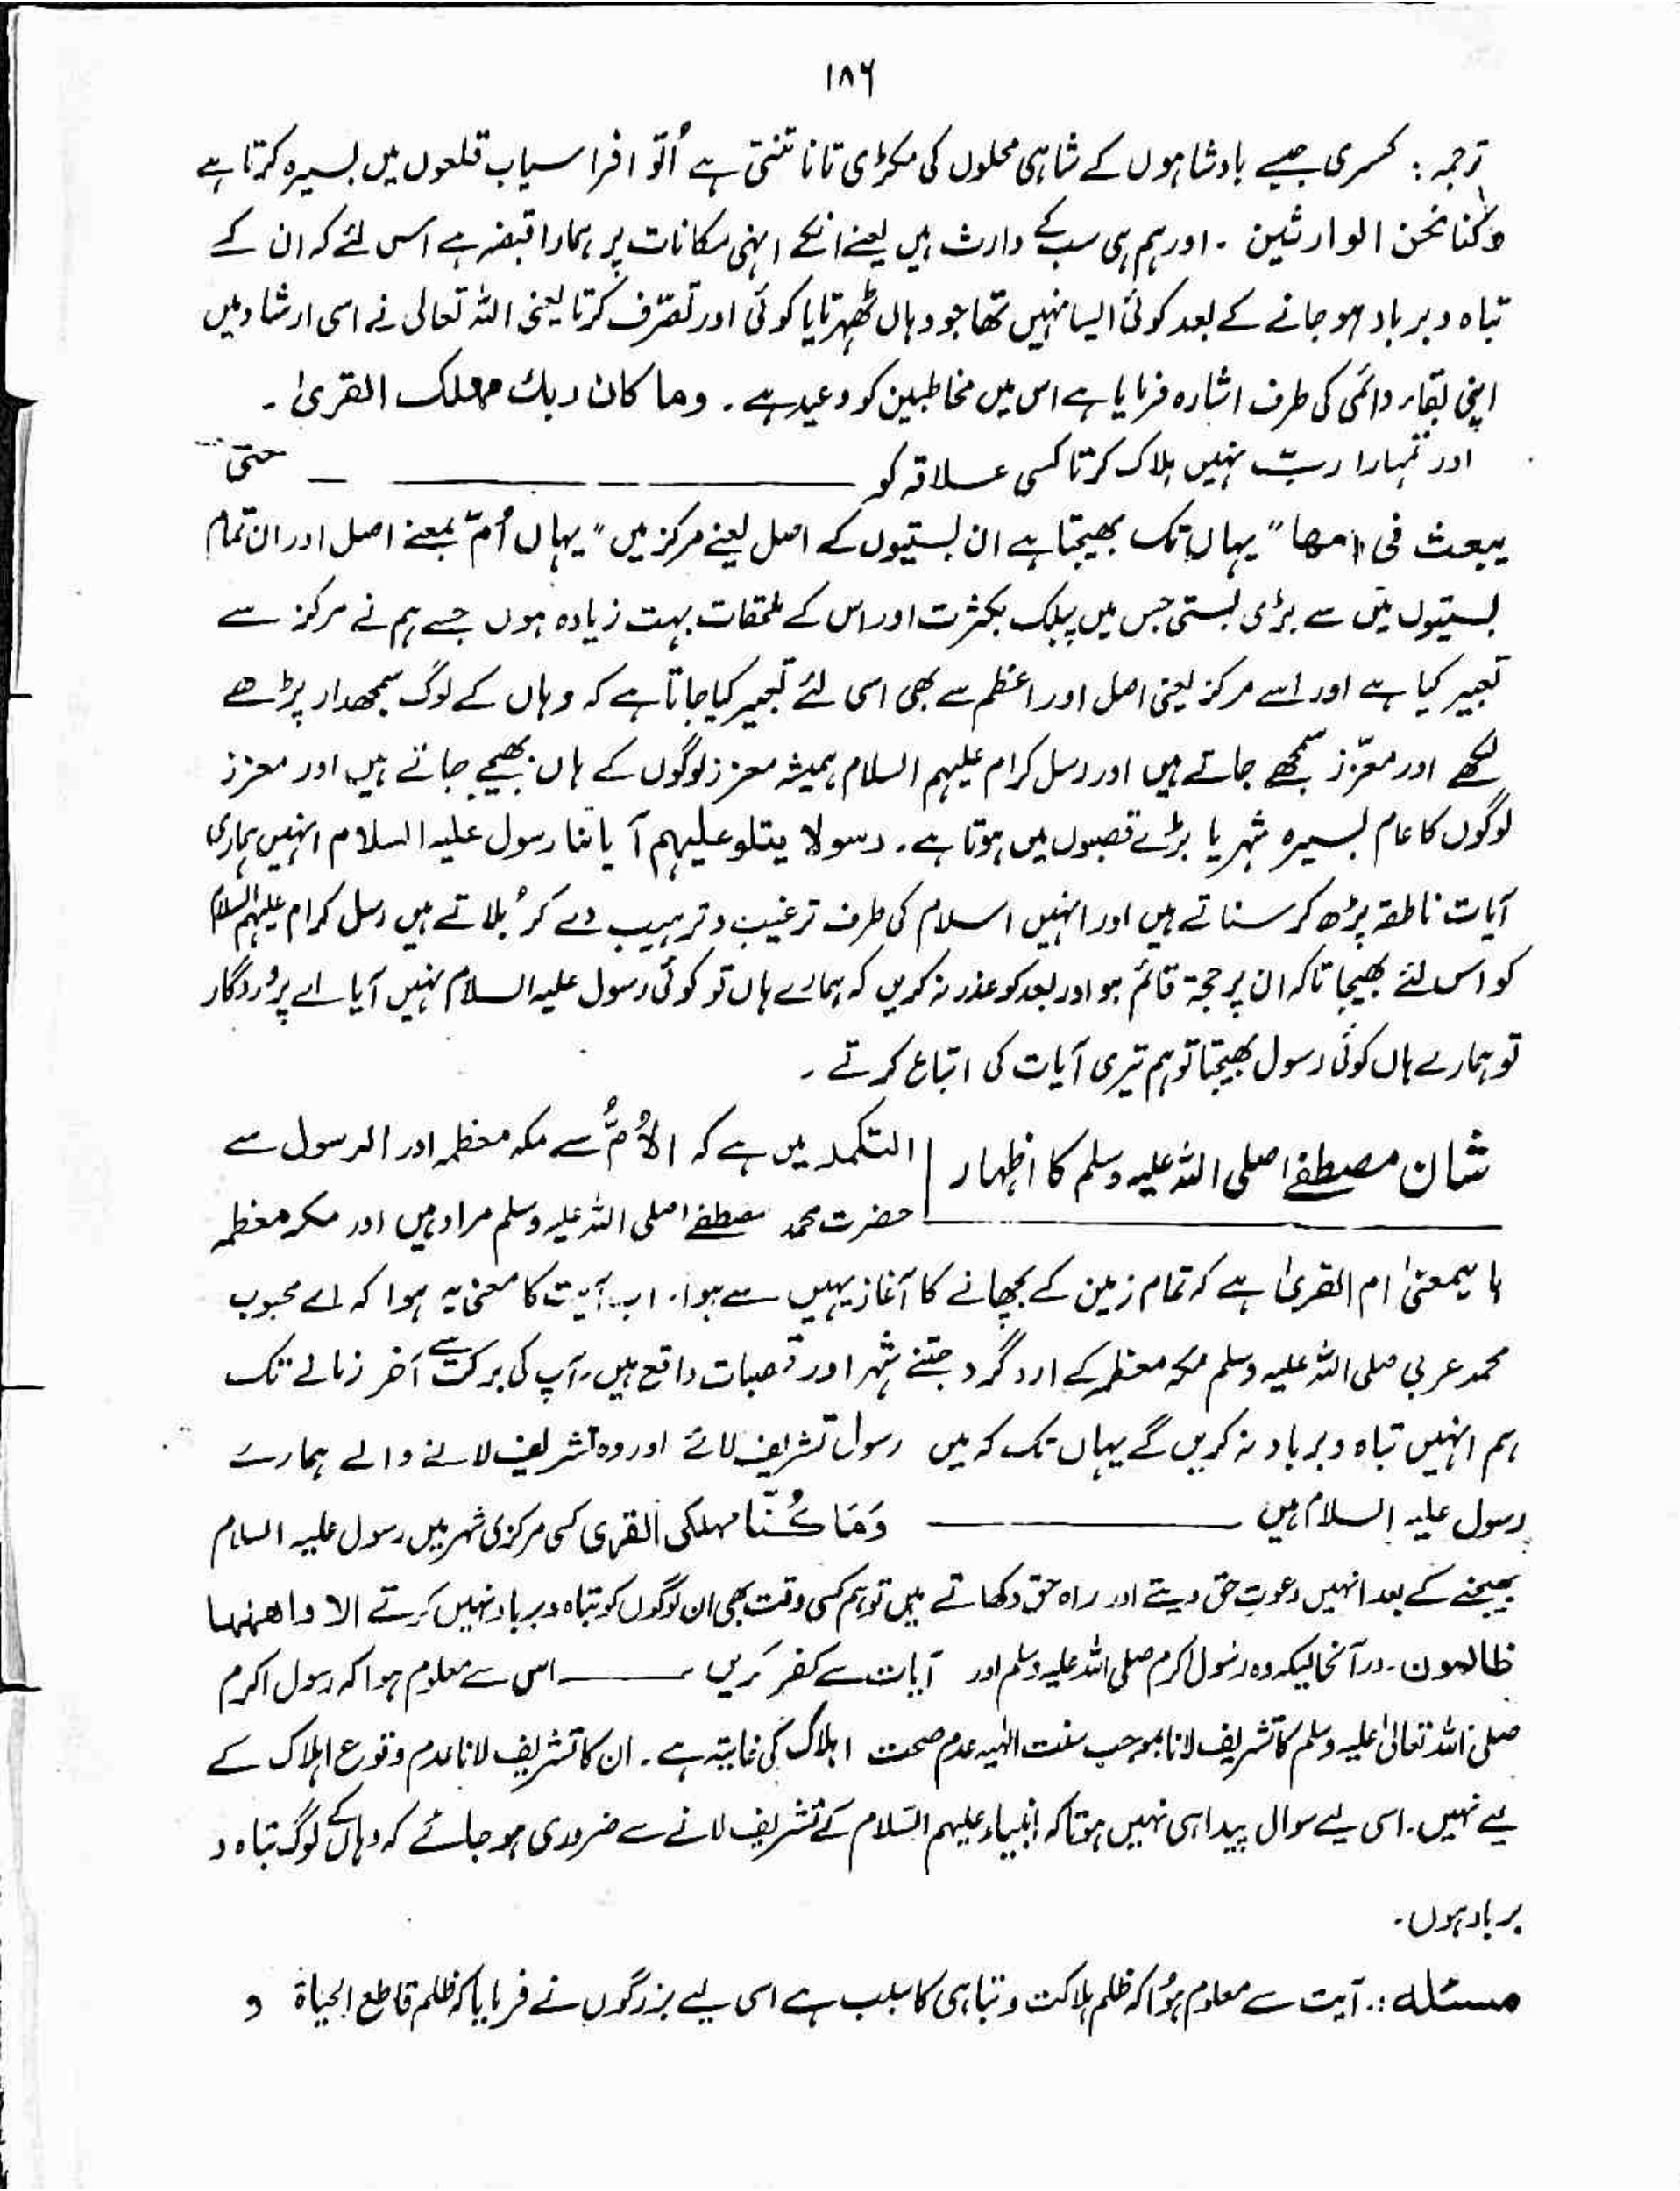 ۱۸۶
ترجمہ : کسری جیسے بادشاہوں کے شاہی محلوں کی مکڑی تانا تنتی ہے اُلّو افراسیاب قلعوں میں بسیرہ کرتا ہے
وکنا نحن الوارثین ۔ اور ہم ہی سب کے وارث ہیں یعنے انکے اپنی مکانات پر ہمارا قبضہ ہے اس لئے کہ ان کے
تباہ و برباد ہو جانے کے بعد کوئی ایسا نہیں تھا جو وہاں ٹھہرتا یا کوئی اور تصرّف کرتا یعنی اللہ تعالی نے اسی ارشاد میں
اپنی بقاء دائمی کی طرف اشارہ فرمایا ہے اس میں مخاطبین کو وعید ہے ۔ وما کان ربك مهلک القریٰ ۔
اور تمہارا ربّ نہیں ہلاک کرتا کسی علاقہ کو ــــــــــ حتی
یبعث فی امھا " یہاں تک بھیجتا ہے ان بستیوں کے اصل یعنے مرکز میں " یہاں اُمّ بمعنے اصل اور ان تمام
بستیوں میں سے بڑی بستی جس میں پبلک بکثرت اور اس کے ملحقات بہت زیادہ ہوں جسے ہم نے مرکز سے
تعبیر کیا ہے اور اسے مرکز یعنی اصل اور اعظم سے بھی اسی لئے تعبیر کیا جاتا ہے کہ وہاں کے لوگ سمجھدار پڑھے
لکھے اور معزّز سمجھے جاتے ہیں اور رسل کرام علیہم السلام ہمیشہ معزز لوگوں کے ہاں بھیجے جاتے ہیں اور معزز
لوگوں کا عام بسیرہ شہر یا بڑے قصبوں میں ہوتا ہے ۔ رسولا یتلو علیہم آیاتنا رسول علیہ السلام انہیں ہماری
آیات ناطقہ پڑھ کر سناتے ہیں اور انہیں اسلام کی طرف ترغیب و ترہیب دے کر بُلاتے ہیں رسل کرام علیہم السلام
کو اس لئے بھیجا تاکہ ان پر حجۃ قائم ہو اور بعد کو عذر نہ کریں کہ ہمارے ہاں تو کوئی رسول علیہ السلام نہیں آیا اے پروردگار
تو ہمارے ہاں کوئی رسول بھیجتا تو ہم تیری آیات کی اتباع کرتے ۔
شان مصطفےٰ صلی اللہ علیہ وسلم کا اظہار | التکملہ میں ہے کہ الاُمُّ سے مکہ معظمہ اور الرسول سے
حضرت محمد مصطفےٰ صلی اللہ علیہ وسلم مراد ہیں اور مکہ معظمہ
بایمعنیٰ ام القریٰ ہے کہ تمام زمین کے بچھانے کا آغاز یہیں سے ہوا ۔ اب آیت کا معنیٰ یہ ہوا کہ اے محبوب
محمد عربی صلی اللہ علیہ وسلم مکہ معظمہ کے ارد گرد جتنے شہر اور قصبات واقع ہیں ۔ آپ کی برکت سے آخر زمانے تک
ہم انہیں تباہ و برباد نہ کریں گے یہاں تک کہ میں رسول تشریف لائے اور وہ تشریف لانے والے ہمارے
رسول علیہ السلام ہیں ــــــــــ وَمَا كُنَّا مہلکی القریٰ کسی مرکزی شہر میں رسول علیہ السلام
بھیجنے کے بعد انہیں دعوتِ حق دیتے اور راہ حق دکھاتے ہیں تو ہم کسی وقت بھی ان لوگوں کو تباہ و برباد نہیں کرتے الا واھلھا
ظالمون ۔ درآنحالیکہ وہ رسول اکرم صلی اللہ علیہ وسلم اور آیات سے کفر کریں ــــــــــ اس سے معلوم ہوا کہ رسول اکرم
صلی اللہ تعالیٰ علیہ وسلم کا تشریف لانا بموجب سنت الٰہیہ عدم صحت اہلاک کی غایۃ ہے ۔ ان کا تشریف لانا عدم وقوع اہلاک کے
لیے نہیں ۔ اسی لیے سوال پیدا ہی نہیں ہوتا کہ انبیاء علیہم السّلام کے تشریف لانے سے ضروری ہو جائے کہ وہاں کے لوگ تباہ و
برباد ہوں ۔
مسئلہ :۔ آیت سے معلوم ہُوا کہ ظلم ہلاکت و تباہی کا سبب ہے اسی لیے بزرگوں نے فرمایا کہ ظلم قاطع الحیاۃ و